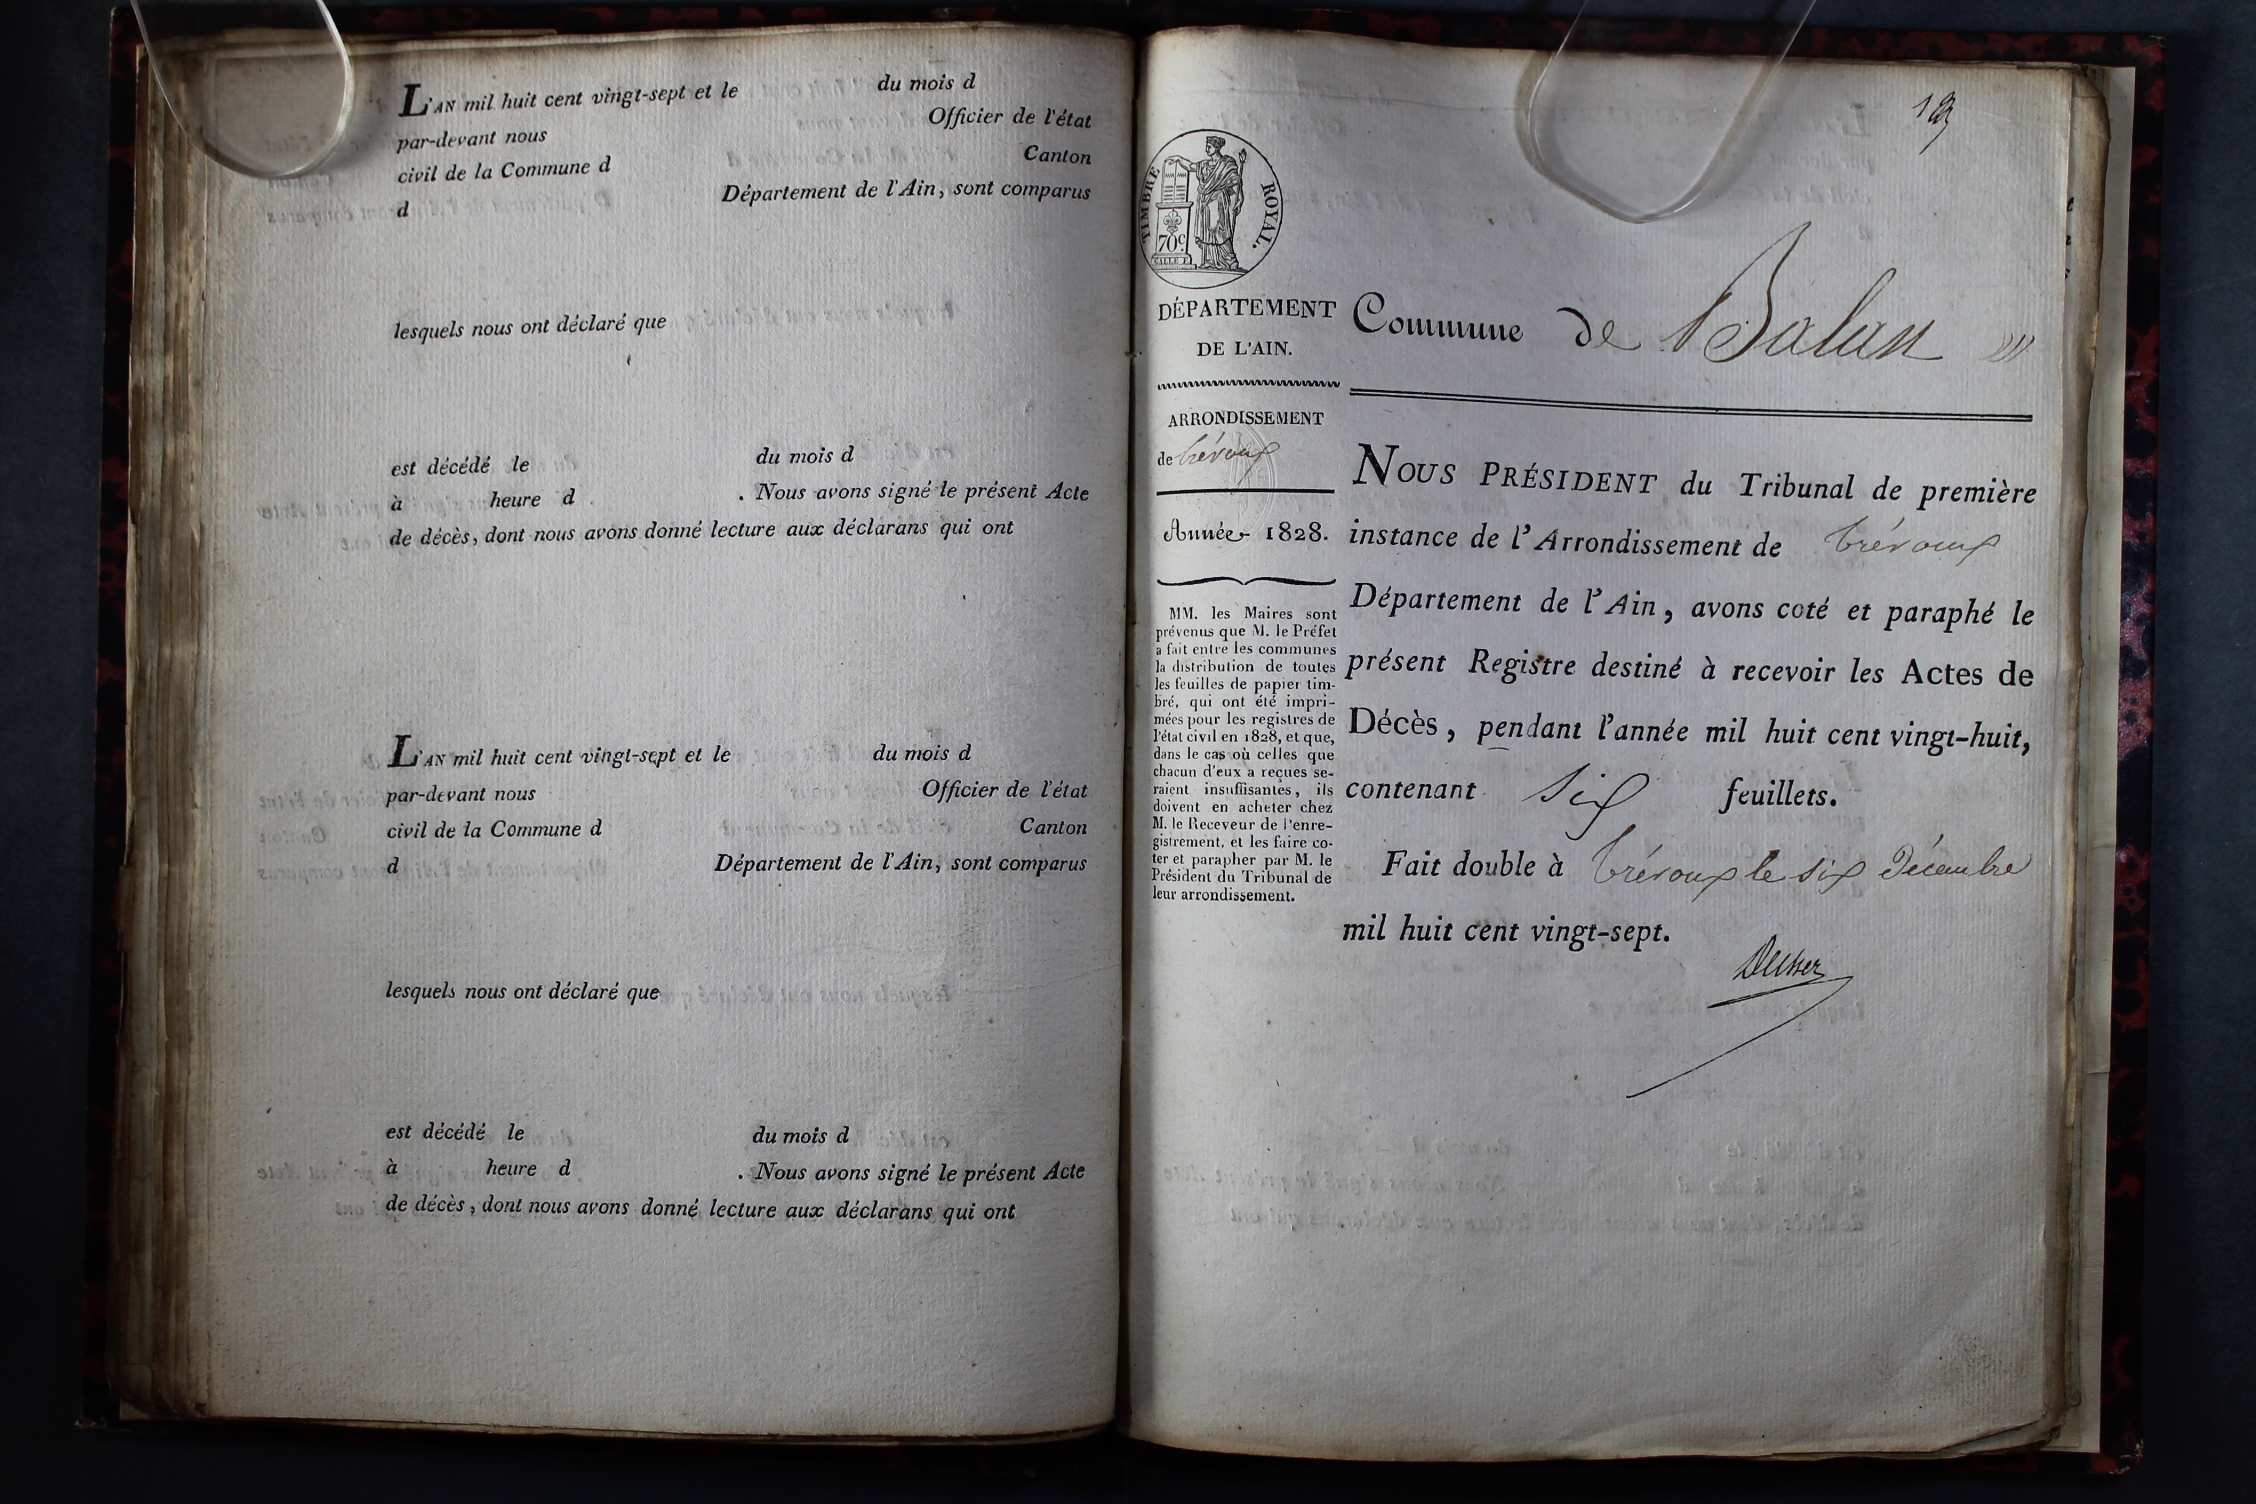 L'AN mil huit cent vingt-sept et le du mois d
par-devant nous Officier de l'état
civil de la Commune d Canton
d Département de l'Ain, sont comparus
lesquels nous ont déclaré que
est décédé le du mois d
à heure d . Nous avons signé le présent Acte
de décès, dont nous avons donné lecture aux déclarans qui ont
L'AN mil huit cent vingt-sept et le du mois d
par-devant nous Officier de l'état
civil de la Commune d Canton
d Département de l'Ain, sont comparus
lesquels nous ont déclaré que
est décédé le du mois d
à heure d . Nous avons signé le présent Acte
de décès, dont nous avons donné lecture aux déclarans qui ont
TIMBRE ROYAL.
70c.
DÉPARTEMENT
DE L'AIN.
ARRONDISSEMENT
de trévoux
Année 1828.
MM. les Maires sont
prévenus que M. le Préfet
a fait entre les communes
la distribution de toutes
les feuilles de papier tim-
bré, qui ont été impri-
mées pour les registres de
l'état civil en 1828, et que,
dans le cas où celles que
chacun d'eux a reçues se-
raient insuffisantes, ils
doivent en acheter chez
M. le Receveur de l'enre-
gistrement, et les faire co-
ter et parapher par M. le
Président du Tribunal de
leur arrondissement.
Commune de Balan
NOUS PRÉSIDENT du Tribunal de première
instance de l'Arrondissement de trévoux
Département de l'Ain, avons coté et paraphé le
présent Registre destiné à recevoir les Actes de
Décès, pendant l'année mil huit cent vingt-huit,
contenant six feuillets.
Fait double à trévoux le six Décembre
mil huit cent vingt-sept.